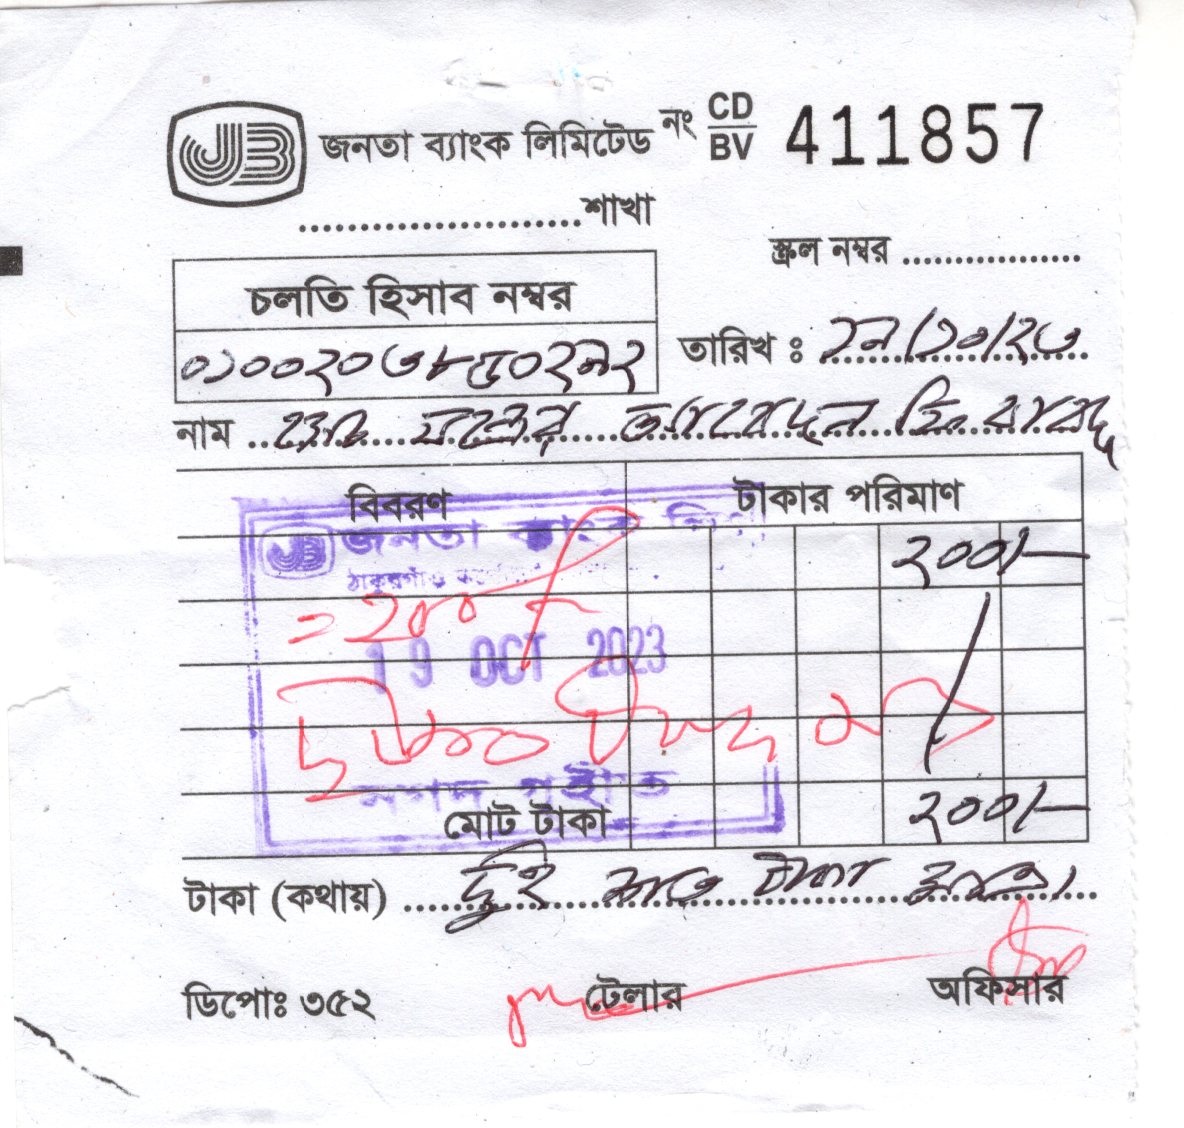 JB জনতা ব্যাংক লিমিটেড নং CD/BV 411857
......................শাখা
স্ক্রল নম্বর ................
চলতি হিসাব নম্বর
তারিখ ঃ ১৯/১০/২৩
০১০০২০৩৮৮০২৯২
নাম
বিবরণ টাকার পরিমাণ
JB জনতা ব্যাংক লিঃ
ঠাকুরগাঁও
২০০/-
= 200/-
19 OCT 2023
নগদ গ্রহীত
মোট টাকা ২০০/-
টাকা (কথায়) দুই শত টাকা মাত্র।
ডিপোঃ ৩৫২ টেলার অফিসার